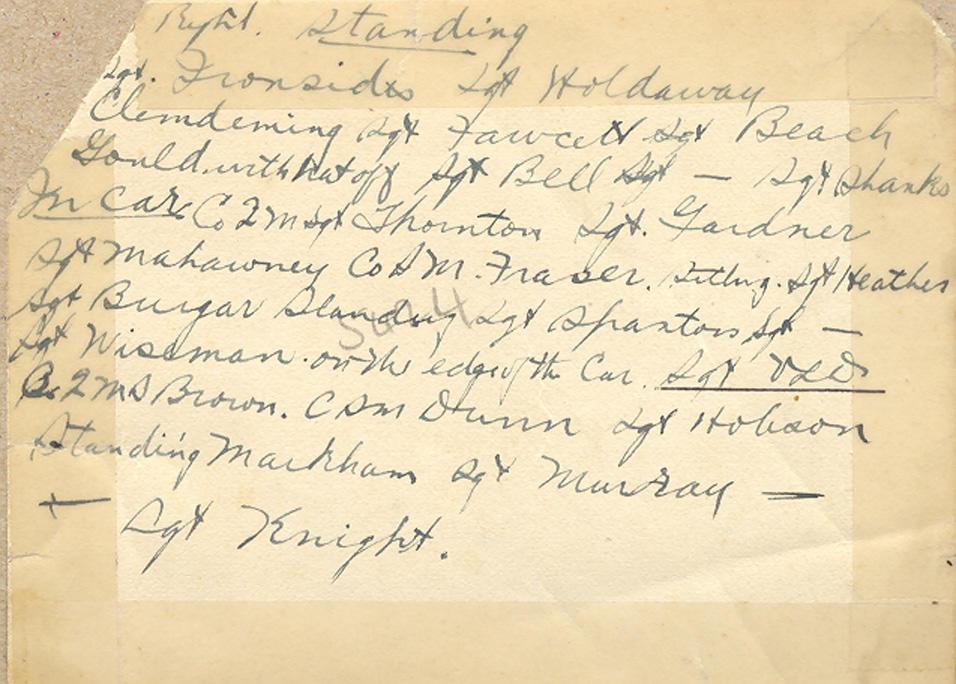 Right. Standing
Sgt. Ironsides Sgt Holdaway
Clemdeming Sgt Fawcett Sgt Beach
Gould. with hat off Sgt Bell Sgt — Sgt Shanks
In Car Co 2 M Sgt Thornton Sgt. Gardner
Sgt Mahawney Co S M. Fraser. Sitting. Sgt Heather
Sgt Burgar Standing Sgt Spanton Sgt —
Sgt Wiseman. on the edge of the Car. Sgt
2 M S Brown. C S M Dunn Sgt Hobson
Standing Markham Sgt Murray —
— Sgt Knight.